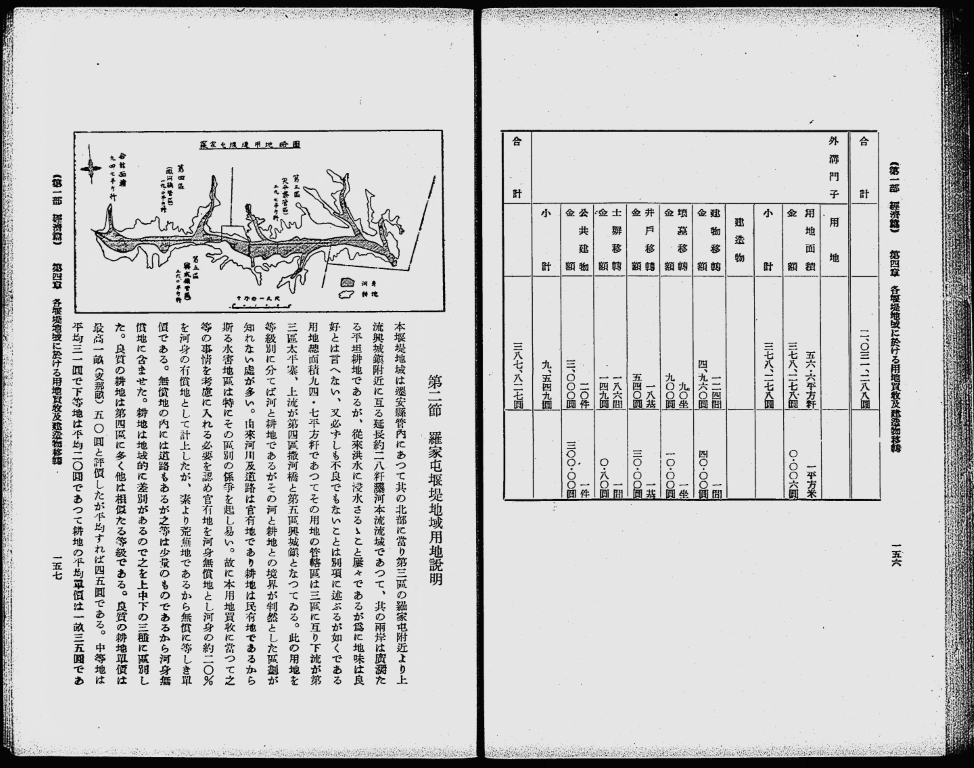 (第一部 經濟篇) 第四章 各堰堤地域に於ける用地買收及建造物移轉
一五六
合計 二、〇三一、二八八圓
外溝門子
用地
用地面積 五六・六平方粁 一平方米
金額 三七八、二七八圓 〇・〇〇六圓
小計 三七八、二七八圓
建造物
建物移轉 一二四間 一間
金額 四、九六〇圓 四〇・〇〇圓
墳墓移轉 九〇坐 一坐
金額 九〇〇圓 一〇・〇〇圓
井戶移轉 一八基 一基
金額 五四〇圓 三〇・〇〇圓
土塀移轉 一八六間 一間
金額 一四九圓 〇・八〇圓
公共建物 一〇件 一件
金額 三、〇〇〇圓 三〇〇・〇〇圓
小計 九、五四九圓
合計 三八七、八二七圓
(第一部 經濟篇) 第四章 各堰堤地域に於ける用地買收及建造物移轉
一五七
羅家屯堰堤用地略圖
第四區
第三區
第五區
第二節 羅家屯堰堤地域用地說明
本堰堤地域は遷安縣管內にあつて其の北部に當り第三區の羅家屯附近より上
流興城鎭附近に亙る延長約二八粁灤河本流流域であつて、其の兩岸は廣濶た
る平坦耕地であるが、從來洪水に浸水さるゝこと屢々であるが爲に地味は良
好とは言へない、又必ずしも不良でもないことは別項に述ぶるが如くである
用地總面積九四・七平方粁であつてその用地の管轄區は三區に亙り下流が第
三區太平寨、上流が第四區撒河橋と第五區興城鎭となつてゐる。此の用地を
等級別に分てば河と耕地であるがその河と耕地との境界が判然とした區劃が
知れない處が多い。由來河川及道路は官有地であり耕地は民有地であるから
斯る水害地區は特にその區別の係爭を起し易い。故に本用地買收に當つて之
等の事情を考慮に入れる必要を認め官有地を河身無償地とし河身の約二〇%
を河身の有償地として計上したが、素より荒蕪地であるから無償に等しき單
價である。無償地の內には道路もあるが之等は少量のものであるから河身無
償地に含ませた。耕地は地域的に差別があるので之を上中下の三種に區別し
た。良質の耕地は第四區に多く他は相似たる等級である。良質の耕地單價は
最高一畝(支那畝)五〇圓と評價したが平均すれば四五圓である。中等地は
平均三一圓で下等地は平均二〇圓であつて耕地の平均單價は一畝三五圓であ